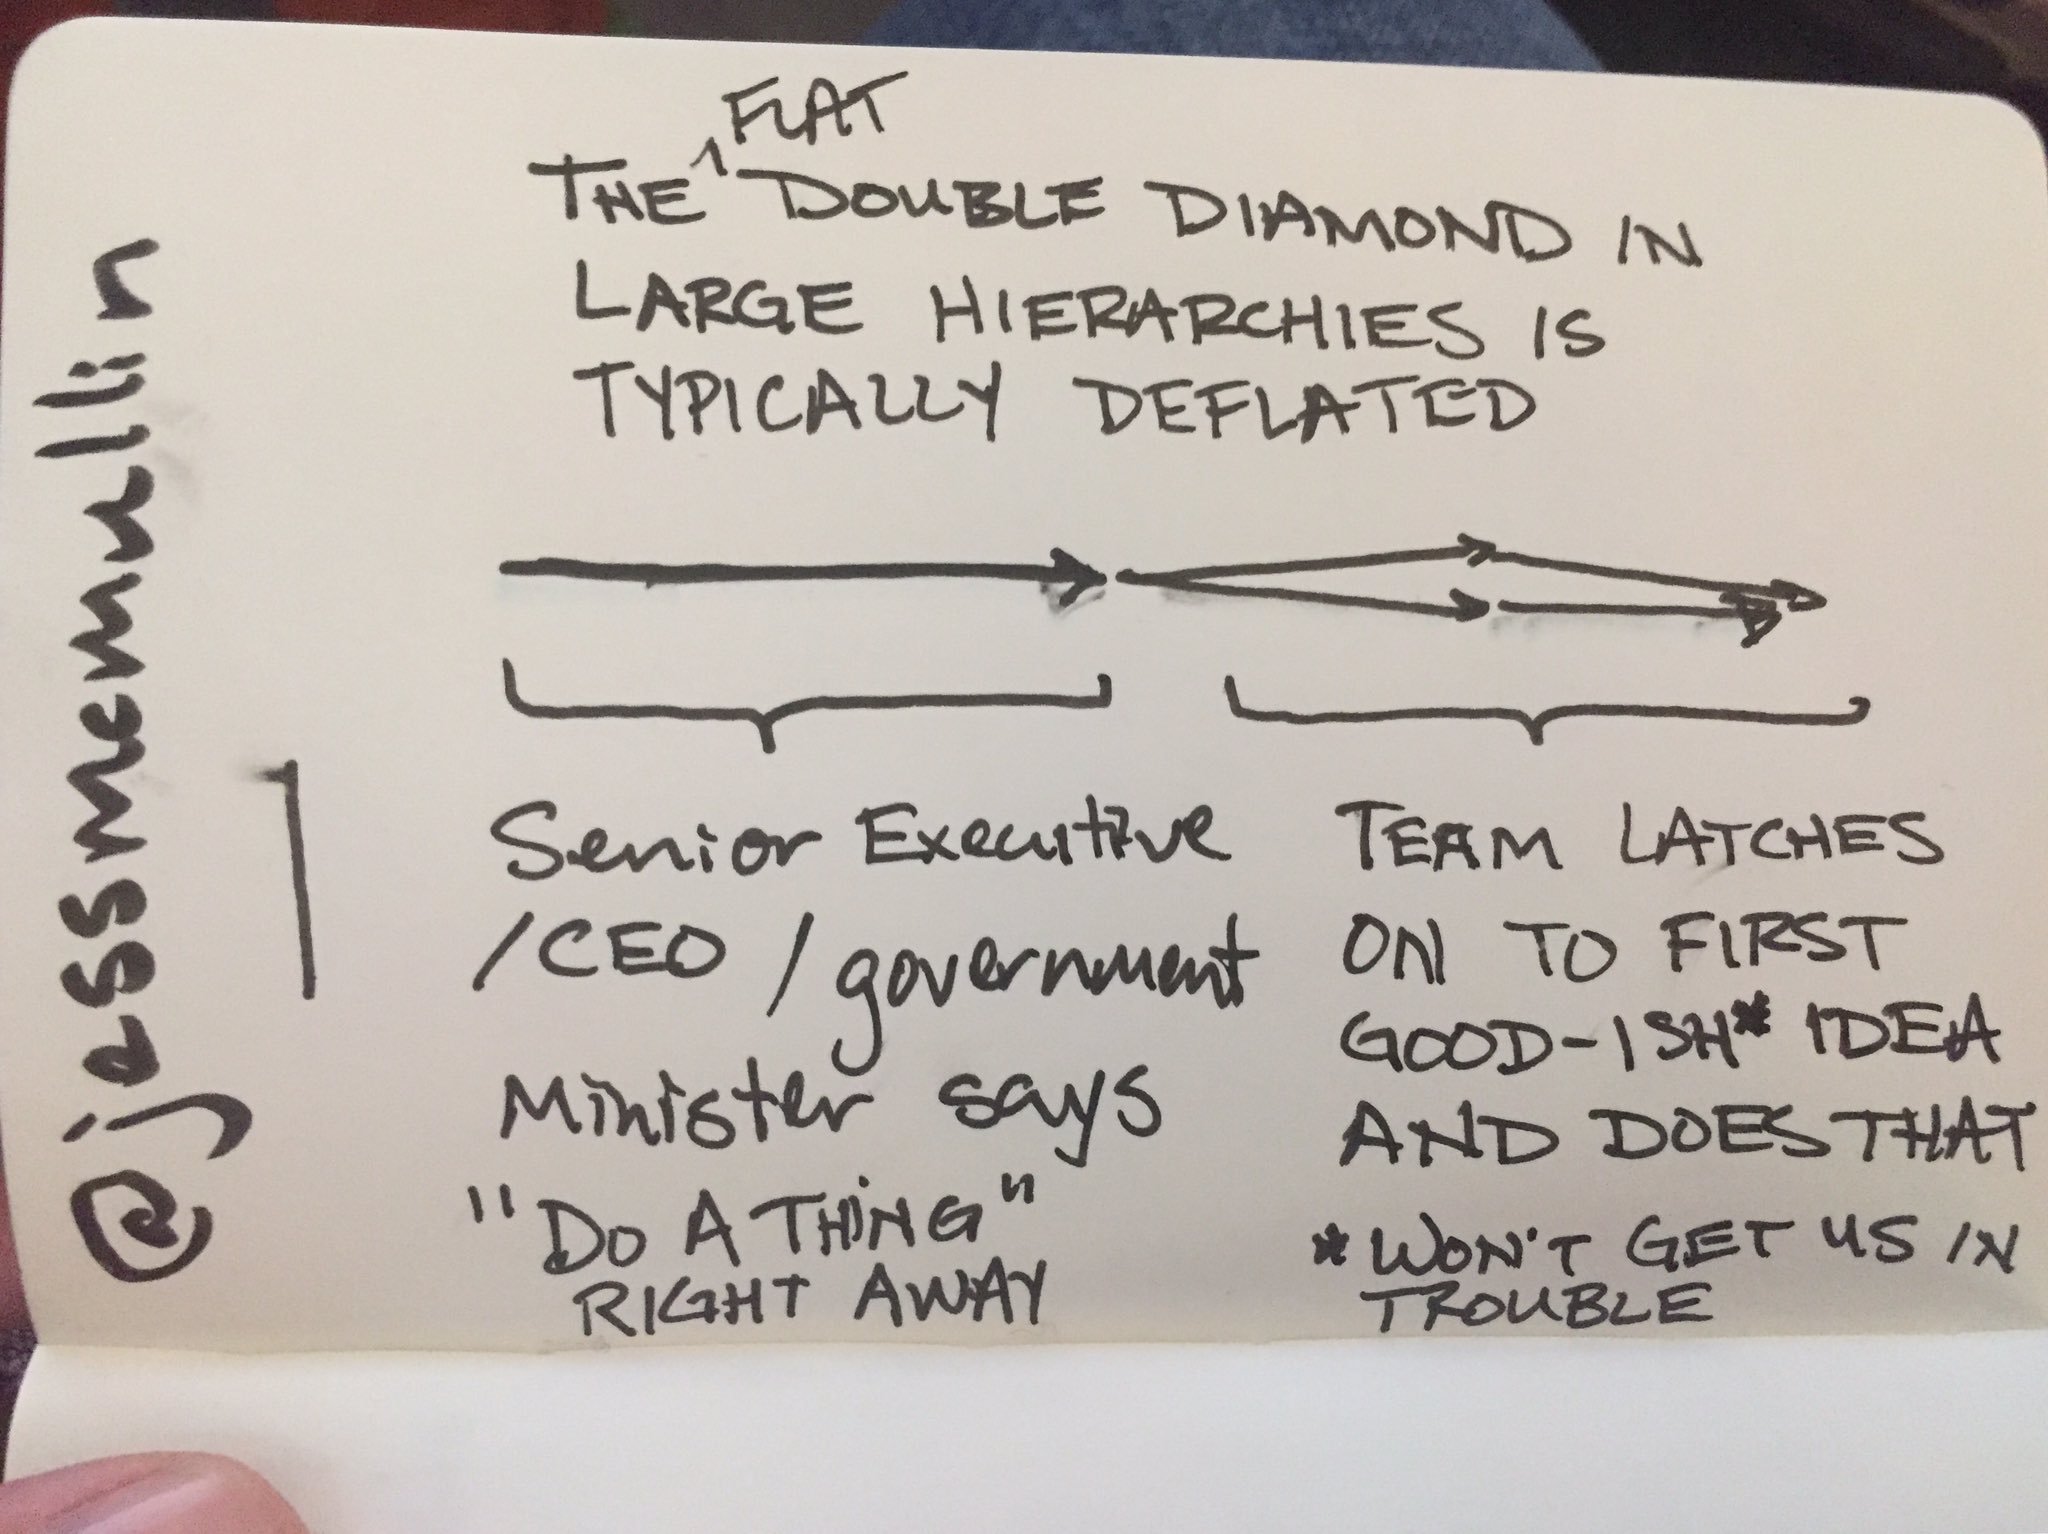 FLAT
THE ^ DOUBLE DIAMOND IN
LARGE HIERARCHIES IS
TYPICALLY DEFLATED
Senior Executive
/CEO / government
Minister says
"DO A THING"
RIGHT AWAY
TEAM LATCHES
ON TO FIRST
GOOD-ISH* IDEA
AND DOES THAT
*WON'T GET US IN
TROUBLE
@jessmcmullin